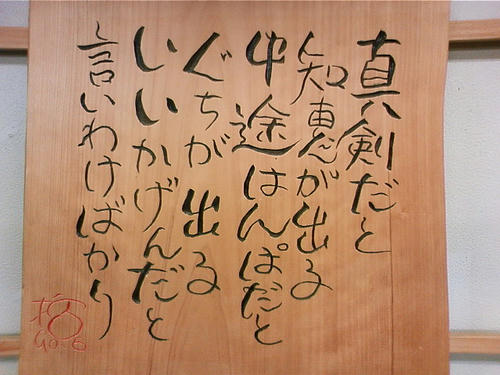 真剣だと
知恵が出る
中途はんぱだと
ぐちが出る
いいかげんだと
言いわけばかり